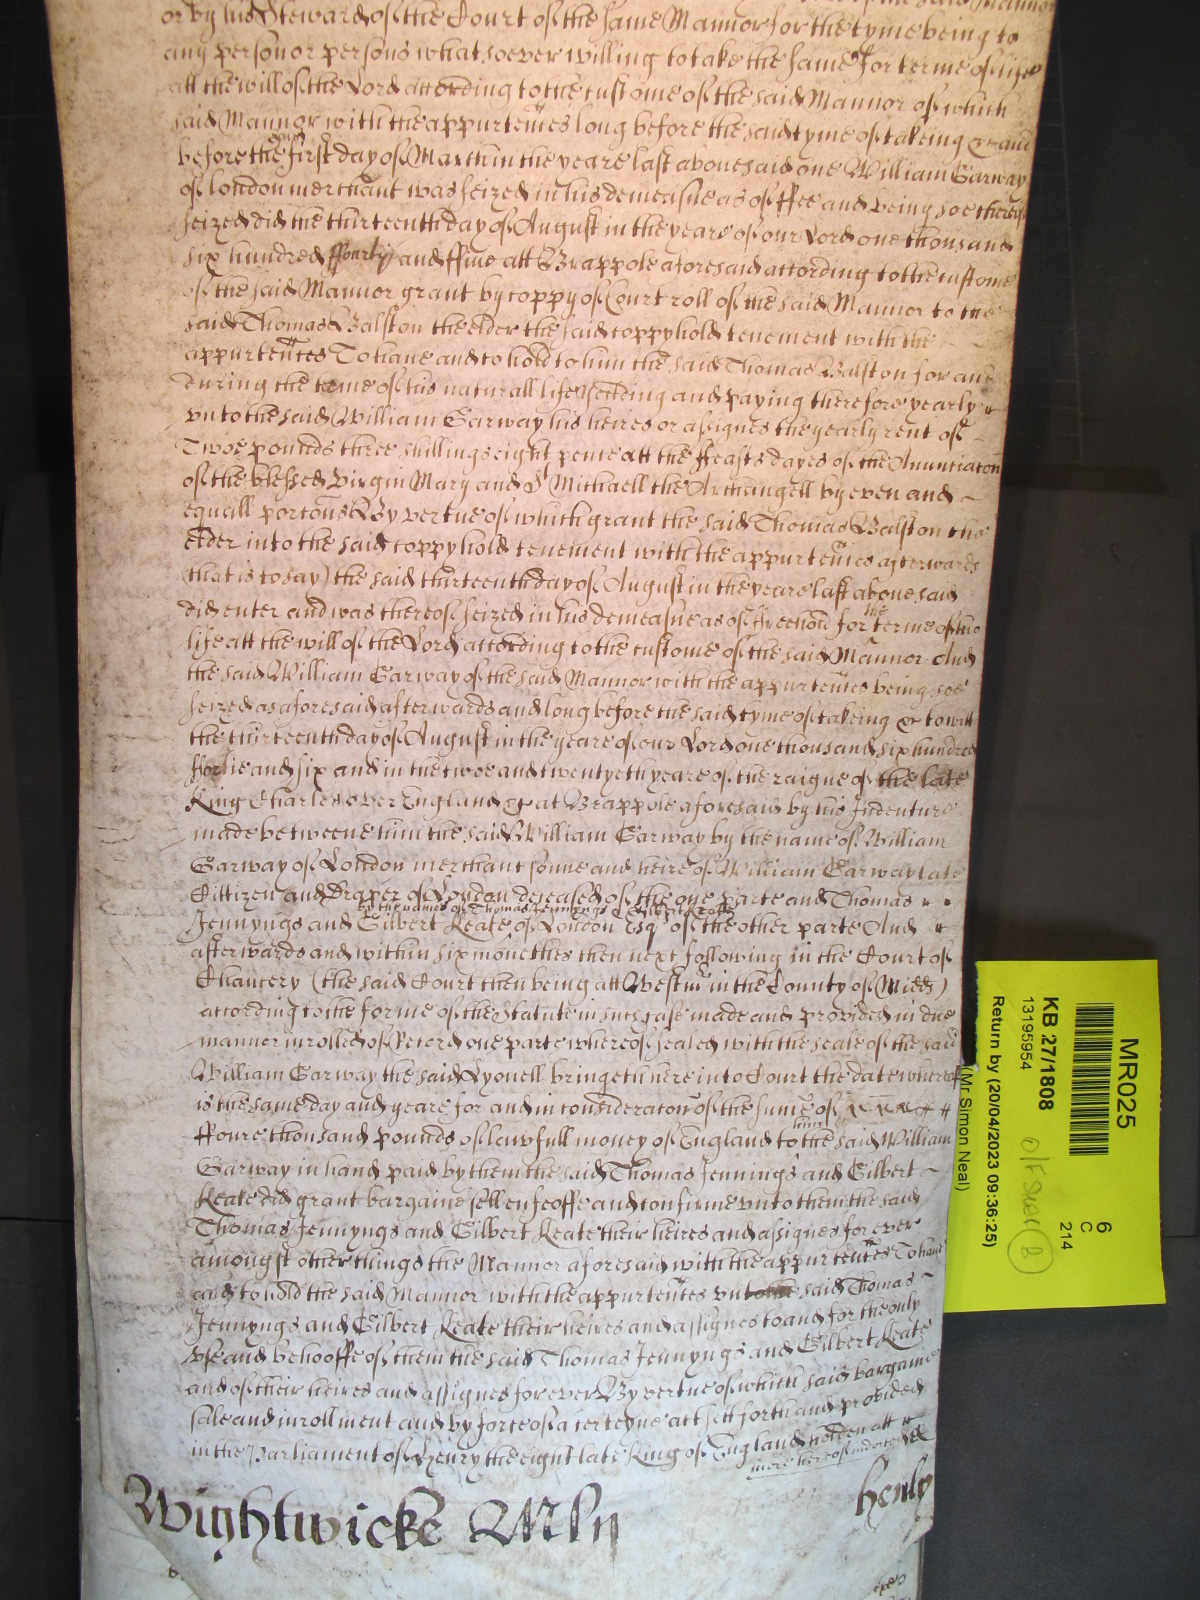 or by his Steward of the Court of the same Mannor for the tyme being to
any person or persons whatsoever willing to take the same for terme of life
att the will of the Lord according to the custome of the said Mannor of which
said Mannor with the appurtences long before the said tyme of takeing &c and
before the first day of March in the yeare last abovesaid one William Garway
of London merchant was seized in his demeasne as of ffee and being soe thereof
seized did the thirteenth day of August in the yeare of our Lord one thousand
six hundred ffourty and ffive att Brappole aforesaid according to the custome
of the said Mannor grant by coppy of Court roll of the said Mannor to the
said Thomas Balston the elder the said coppyhold tenement with the
appurtences To have and to hold to him the said Thomas Balston for and
during the terme of his naturall life yeilding and paying therefore yearly
vnto the said William Garway his heires or assignes the yearly rent of
Twoe pounds three shillings eight pence att the ffeasts dayes of the Anuntiacon
of the blessed Virgin Mary and St Michaell the Archangell by even and
equall porcons By vertue of which grant the said Thomas Balston the
elder into the said coppyhold tenement with the appurtences afterwards
(that is to say) the said thirteenth day of August in the yeare last abovesaid
did enter and was thereof seized in his demeasne as of ffreehold for the terme of his
life att the will of the Lord according to the custome of the said Mannor And
the said William Garway of the said Mannor with the appurtences being soe
seized as aforesaid afterwards and long before the said tyme of takeing &c to witt
the thirteenth day of August in the yeare of our Lord one thousand six hundred
fforlie and six and in the twoe and twentyeth yeare of the raigne of the late
King Charles over England &c at Brappole aforesaid by his Indenture
made betweene him the said William Garway by the name of William
Garway of London merchant sonne and heire of William Garway late
Cittizen and Draper of London deceased of the one parte and Thomas
by the names of Thomas Jennyngs & Gilbert Keate
Jennyngs and Gilbert Keate of London Esqr of the other parte And
afterwards and within six monethes then next following in the Court of
Chancery (the said Court then being att Westmr in the County of Midd)
according to the forme of the Statute in such case made and provided in due
manner inrolled of Record one parte whereof sealed with the seale of the said
William Garway the said Lyonell bringeth here into Court the date whereof
is the same day and yeare for and in consideracon of the sume of
ffoure thousand pounds of lawfull money of England to him the said William
Garway in hand paid by them the said Thomas Jennings and Gilbert
Keate did grant bargaine sell enfeoffe and confirme vnto them the said
Thomas Jennyngs and Gilbert Keate their heires and assignes for ever
amongst other things the Mannor aforesaid with the appurtences To have
and to hold the said Mannor with the appurtences vnto the said Thomas
Jennyngs and Gilbert Keate their heires and assignes to and for the only
vse and behooffe of them the said Thomas Jennyngs and Gilbert Keate
and of their heires and assignes for ever By vertue of which said bargaine
sale and inrollment and by force of a certeyne act sett forth and provided
in the Parliament of Henry the eight late King of England holden att
more hereof indorced
Wightwicke Mln
henly
MR025
6
C
214
KB 27/1808
13195954
Return by (20/04/2023 09:36:25)
(Mr. Simon Neal)